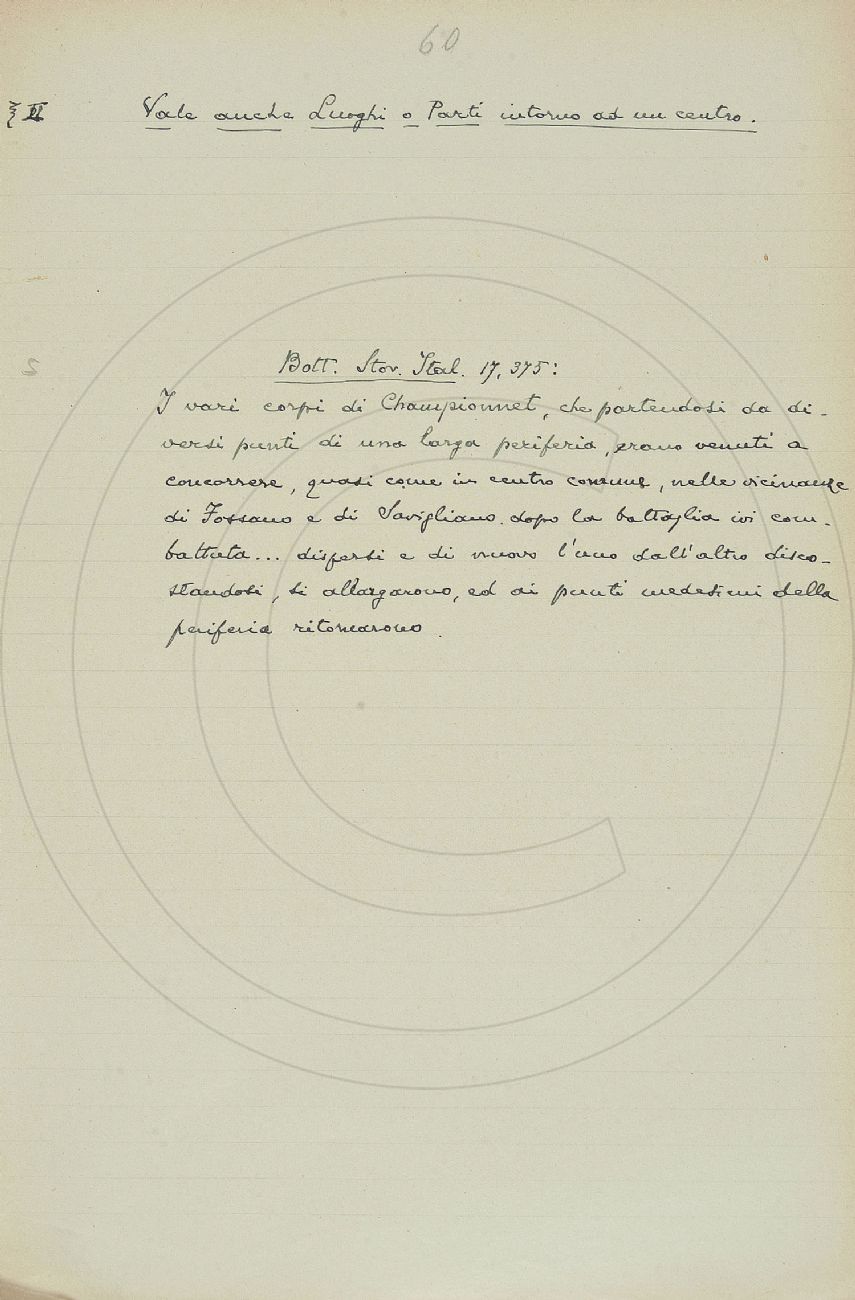 60
§ II Vale anche Luoghi o Parti intorno ad un centro.
Bott. Stor. Ital. 17, 375:
I vari corpi di Championnet, che partendosi da di-
versi punti di una larga periferia, erano venuti a
concorrere, quasi come in centro comune, nelle vicinanze
di Fossano e di Savigliano dopo la battaglia ivi com-
battuta... dispersi e di nuovo l'uno dall'altro disco-
standosi, si allargarono, ed ai punti medesimi della
periferia ritornarono.